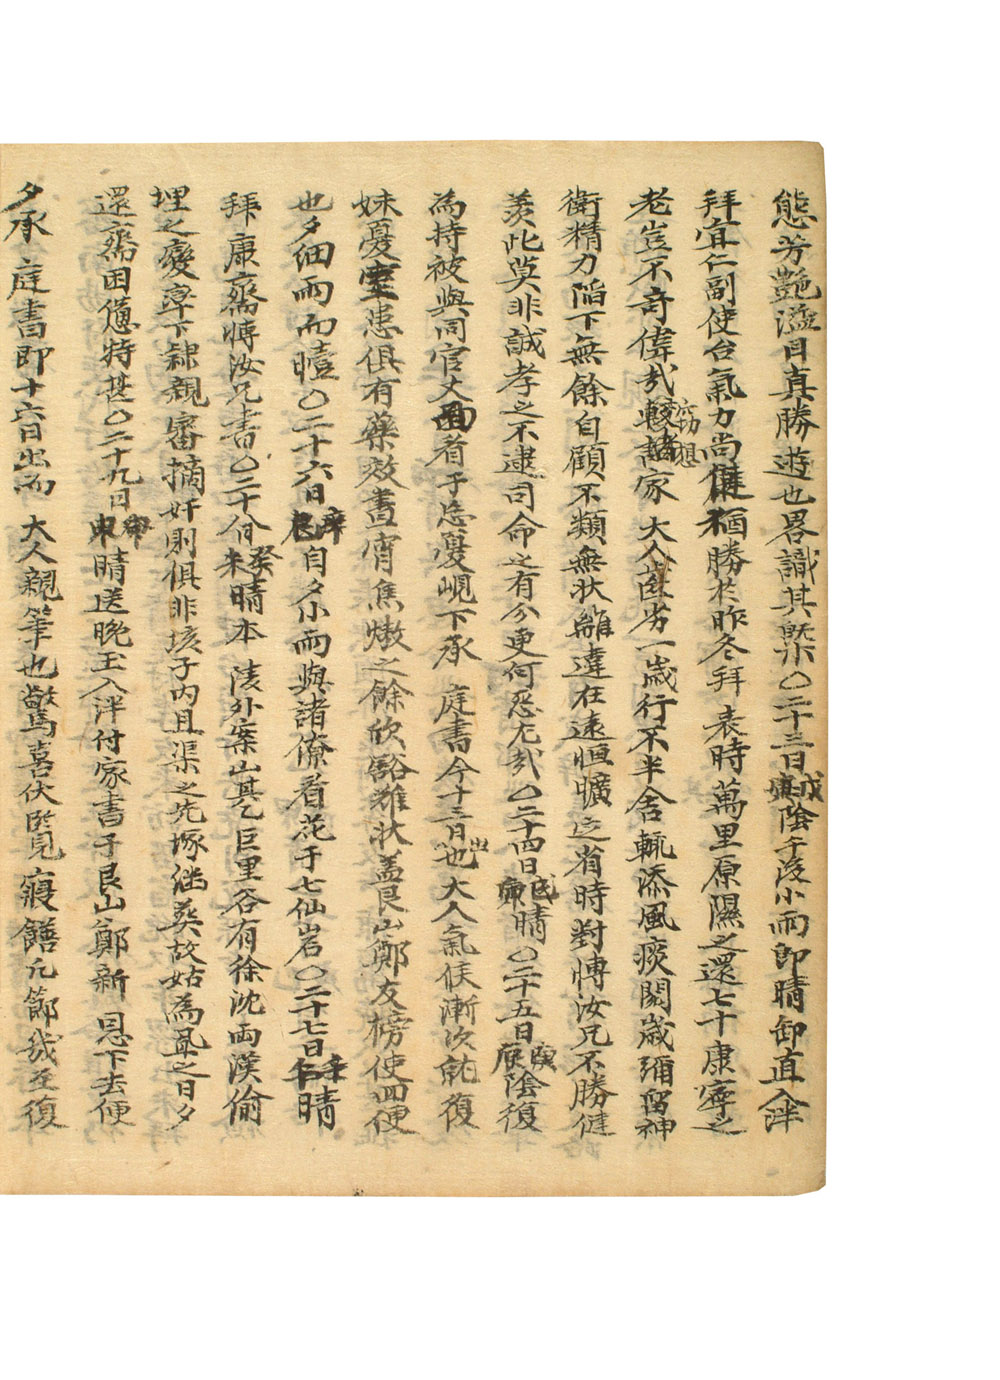 態芳艶溢目真勝遊也畧識其槩○二十三日戊寅陰午後小雨即晴卸直入泮
拜宜仁副使台氣力尚健猶勝於昨冬拜 表時萬里原濕之還七十康寧之
老豈不奇偉哉窃想諸家 大人齒劣一歲行不半舍輒添風痰閱歲彌留神
衛精力陷下無餘自顧不類無状離違在遠恒曠定省時對博汝兄不勝健
羨此莫非誠孝之不逮司命之有分更何怨尤哉○二十四日 晴○二十五日庚辰陰復
為持被與同官丈 看于忠憂峴下承 庭書今十三日出也大人氣候漸次就復
妹憂 患俱有藥效晝宵焦燉之餘欣豁難状盖艮山鄭友榜使回便
也夕細雨而曀○二十六日 自夕小雨與諸僚看花于七仙岩○二十七日 晴
拜康齋博汝兄書○二十八日癸未晴本 陵外案山基乞巨里谷有徐沈両漢偷
埋之變率下隷親審摘奸則俱非垓子内且渠之先塚继葬故姑為置之日夕
還齋困憊特甚○二十九日甲申晴送晚玉入泮付家書于艮山鄭新 恩下去便
夕承 庭書即十六日出而 大人親筆也驚喜伏覽寢饍凡節幾至復